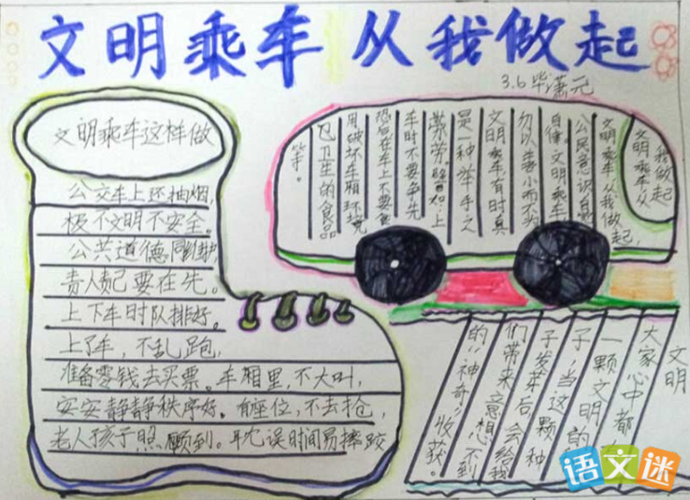 文明乘车 从我做起
3.6 毕潇元
文明乘车这样做
公交车上还抽烟,
极不文明不安全。
公共道德同维护,
责人责己要在先。
上下车时队排好。
上了车,不乱跑,
准备零钱去买票。车厢里,不大叫,
安安静静秩序好。有座位,不去抢,
老人孩子照顾到。耽误时间易摔跤
我做起
文明乘车从
文明乘车从我做起,
公民意识自
自律。文明乘车
勿以善小而不为
文明乘车有时真
是一种举手之
劳,譬如:上
车时不要争先
恐后在车上不要食
用破坏车厢环境
卫生的食品
等。
文明
大家心中都
一颗文明的
子,当这颗种
子发芽后会给我
们带来意想不到
的“神奇”收获。
语文迷